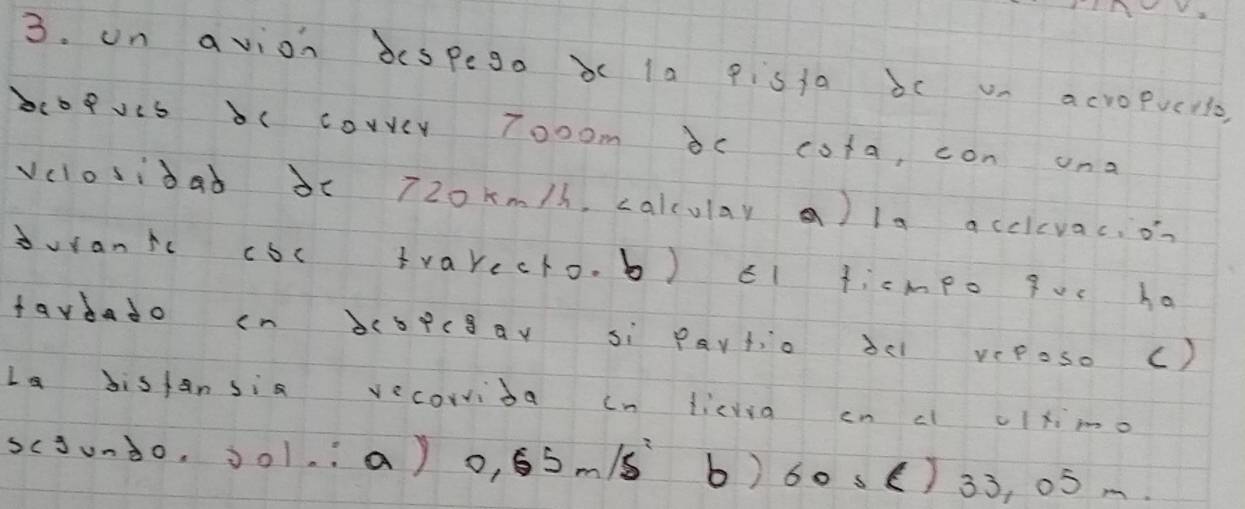 3. un avión despega de la pista de un aeropuerto,
despues de correr 7000m de esta, con una
velosidad de 720 km/h. calcular a) la aceleración
durante ese trayecto. b) El tiempo que ha
tardado en despegar si Partio del reposo c)
La distansia recorrida en tierra en el ultimo
segundo. sol.: a) 0,65 m/s² b) 60 s c) 33,05 m.